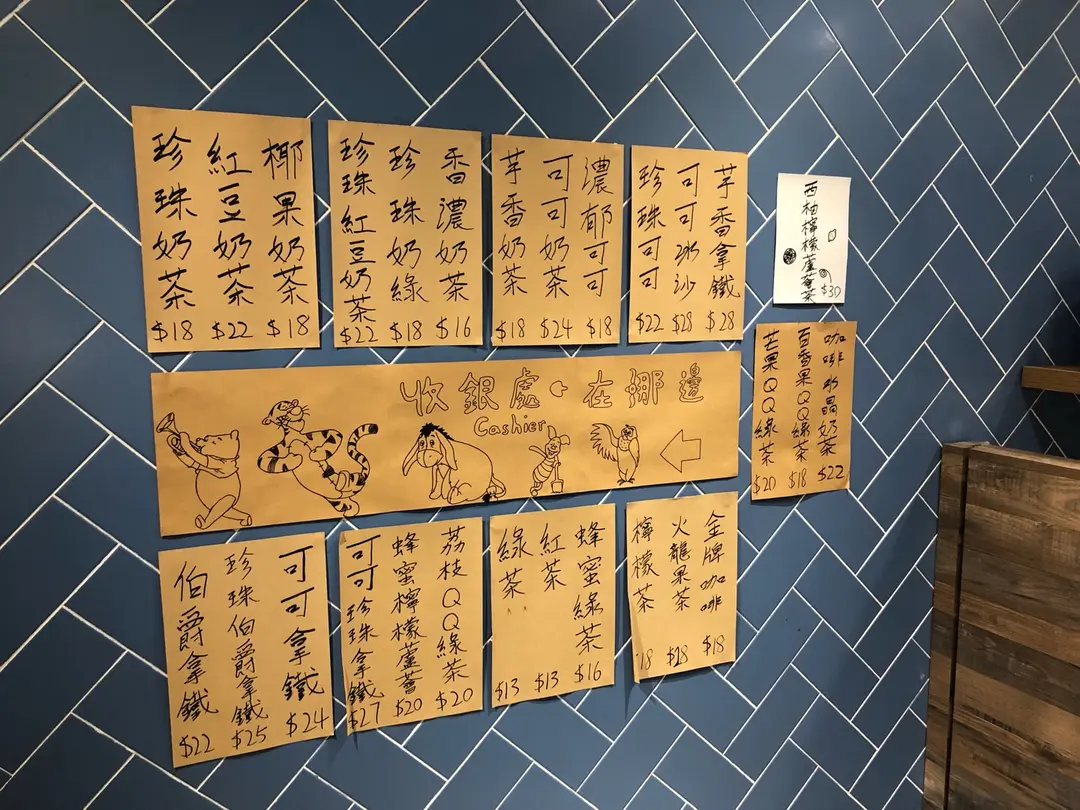 珍珠奶茶 $18
紅豆奶茶 $22
椰果奶茶 $18
珍珠紅豆奶茶 $22
珍珠奶綠 $18
香濃奶茶 $16
芋香奶茶 $18
可可奶茶 $24
濃郁可可 $18
珍珠可可 $22
可可冰沙 $28
芋香拿鐵 $28
西柚檸檬蘆薈茶 $30
收銀處。在挪邊
Cashier
芒果QQ綠茶 $20
百香果QQ綠茶 $18
咖啡水晶奶茶 $22
伯爵拿鐵 $22
珍珠伯爵拿鐵 $25
可可拿鐵 $24
可可珍珠拿鐵 $27
蜂蜜檸檬蘆薈 $20
荔枝QQ綠茶 $20
綠茶 $13
紅茶 $13
蜂蜜綠茶 $16
檸檬茶 $18
火龍果茶 $18
金牌咖啡 $18